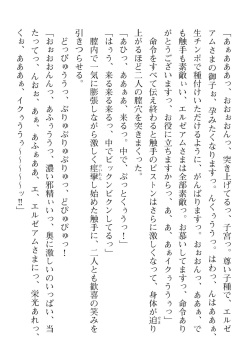 「あぁああっ、おおぉおんっ、突き上げてるっ、子宮っ。尊い子種で、エルゼ
アムさまの御子ぉ、孕みたくなりますっ。んくぅううっ、はわっ、んはぁああっ、
生チンポで種付けいただけるように、がんばりますっ。おぉおんっ、ああぁ、で
も触手も素敵ぃい、エルゼアムさまは全部素敵っ。お慕いしてますっ、命令あり
がとうございますっ、お役に立ちますからっ、あ、あ、あぁイクぅううぅっ」
命令をすべて伝え終わると触手のピストンはさらに激しくなって、身体が迫り
上がるほど二人の膣穴を突きまくった。
「あひっ、ああぁっ、来るっ、来るっ、中で、ぶっとくぅうっ！」
「はぅうっ、来る来る来るっ、中でビックンビクンしてるっ」
膣内で一気に膨張しながら激しく痙攣し始めた触手に、二人とも歓喜の笑みを
引きつらせる。
どっぴゅううっ、ぶりゅぶりゅりゅっ、どぴゅぴゅっ！
「おぉおおんんっ、あふぅううっ、濃い邪精ぃいっ、奥に激しいのいっぱい、当
たってっ、んおぉ、あぁ、あふぁああ、エ、エルゼアムさまにっ、栄光あれっ、
くぉ、ああああぁ、イクぅううぅ～～～～っ!!」